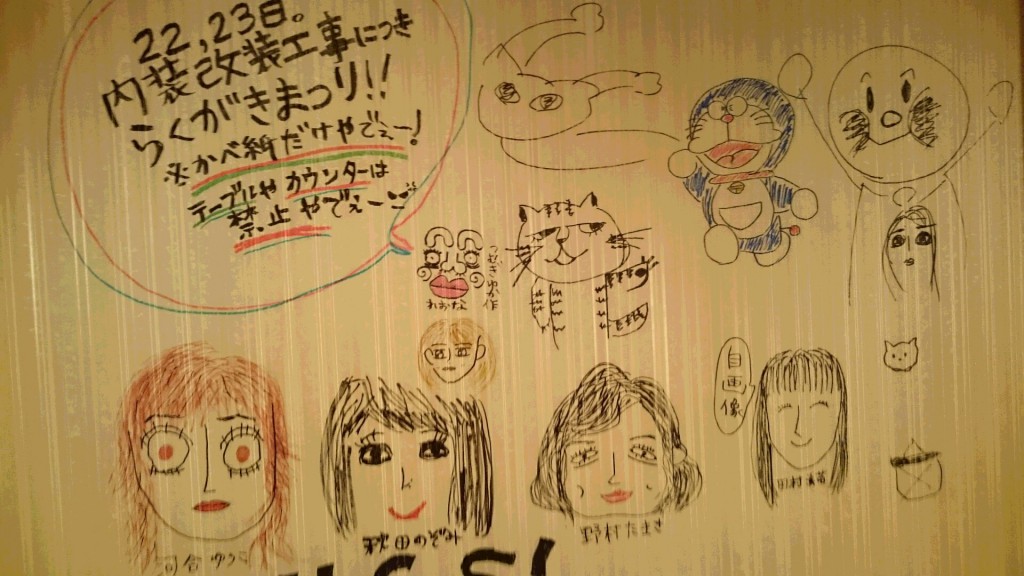 22,23日。
内装改装工事につき
らくがきまつり!!
※かべ紙だけやでぇー!
テーブルや カウンターは
禁止やでぇー
自画像
河合ゆう
秋田のぞみ
野村たまき